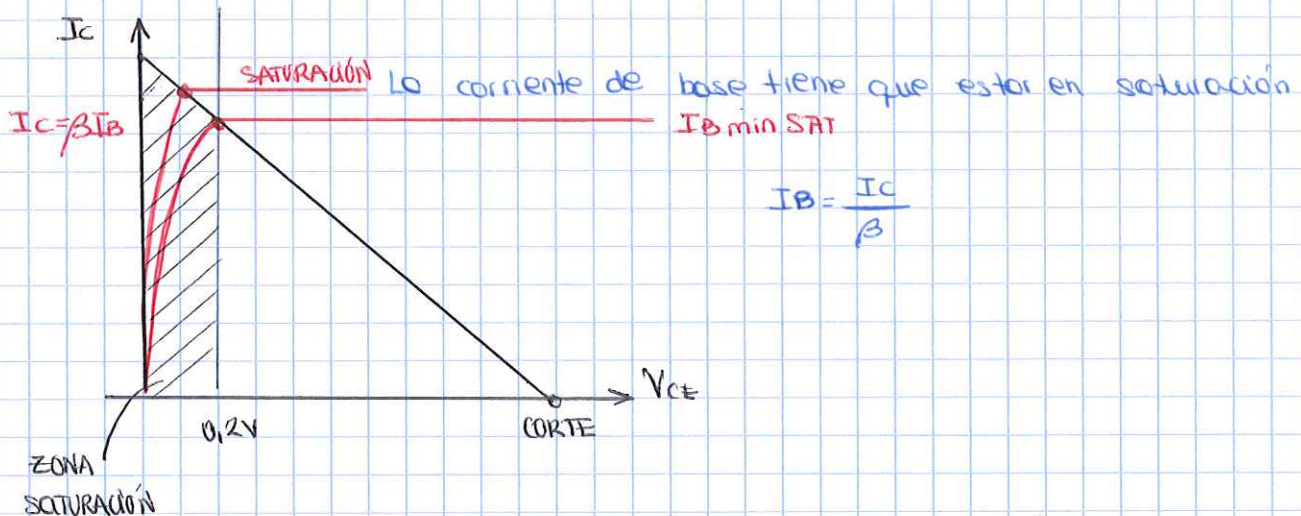 Ic
SATURACIÓN Lo corriente de base tiene que estar en saturación
Ic=βIB
IB min SAT
IB = Ic / β
VCE
0,2V
CORTE
ZONA
SATURACIÓN